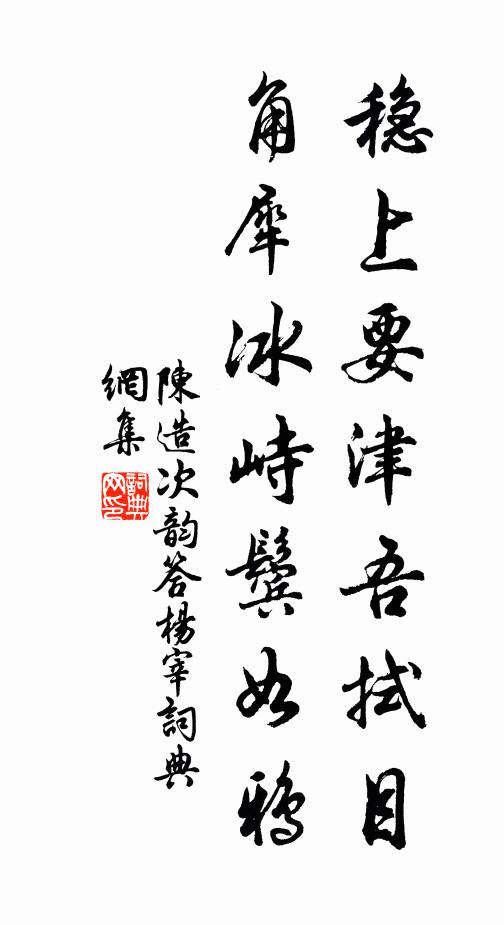 穩上要津吾拭目
角犀冰峙鬢如鴉
陳造次韵答楊宰詞典
網集
詞典
网印